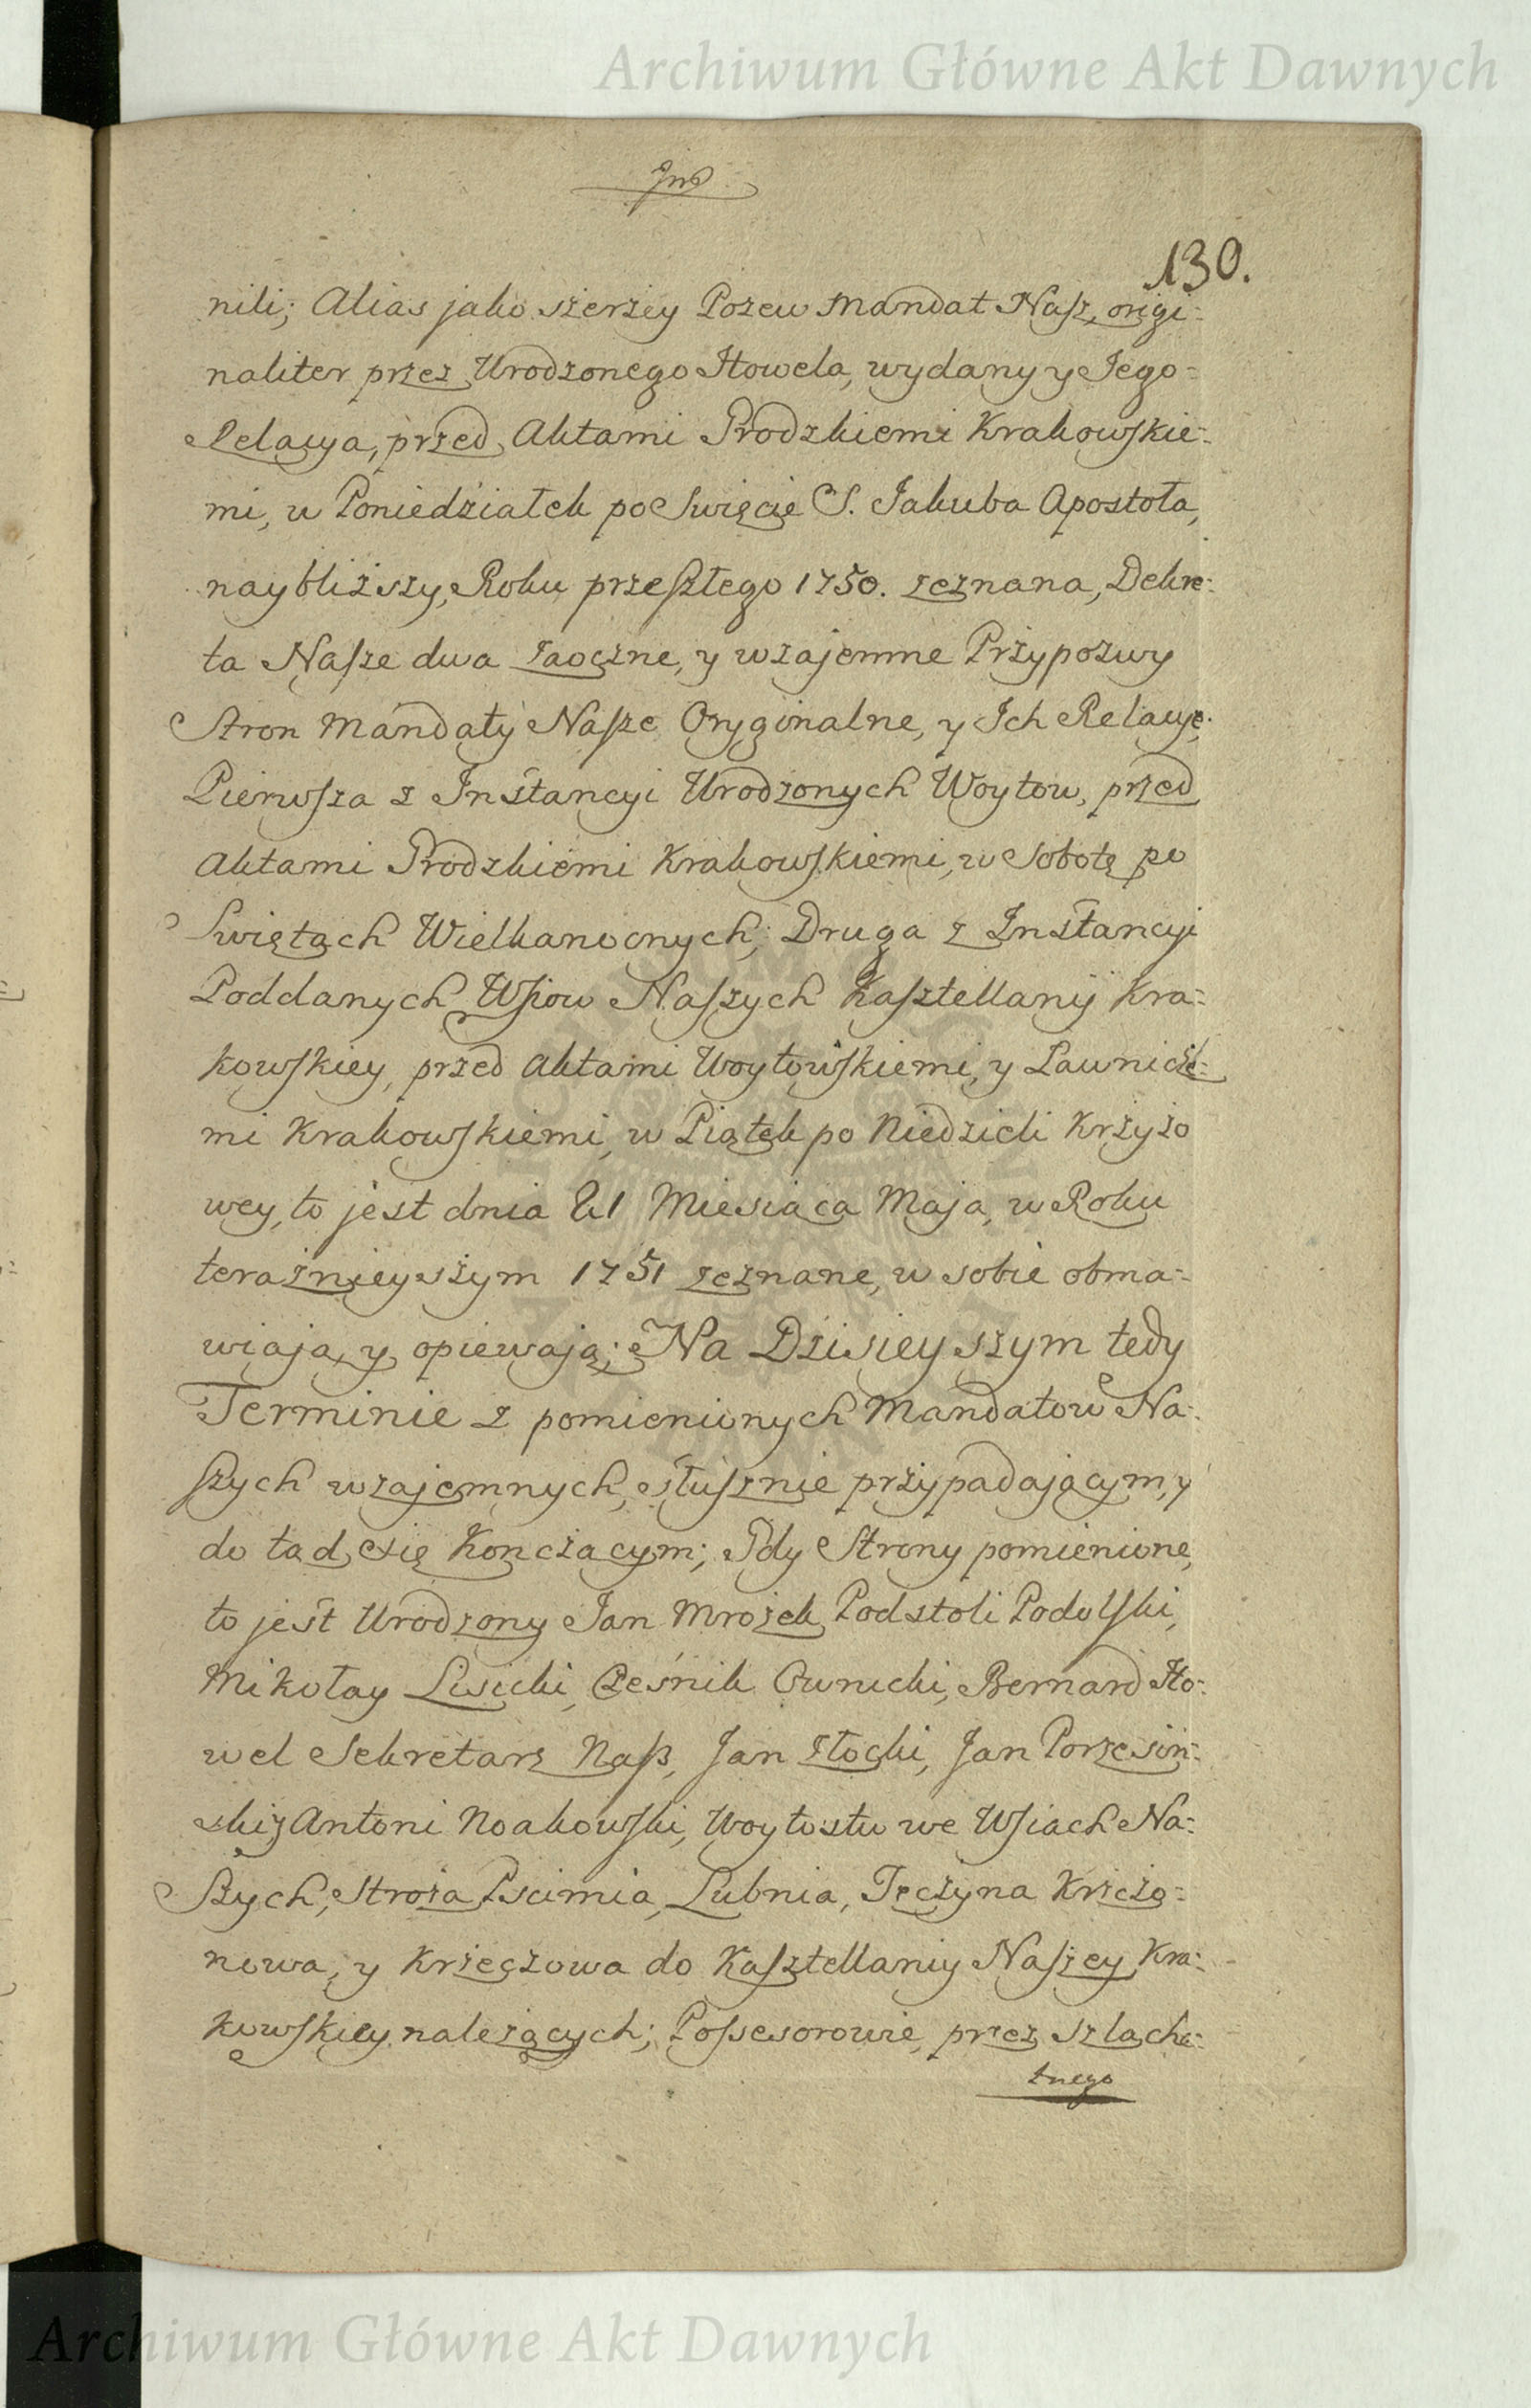 Archiwum Główne Akt Dawnych
130.
nili; Alias jako szerzey Pozew Mandat Nasz, origi=
naliter przez Urodzonego Howela, wydany y Jego=
Relacya, przed Aktami Grodzkiemi Krakowskie=
mi, w Poniedziałek po Swięcie S. Jakuba Apostoła,
naybliższy, Roku przeszłego 1750. zeznana, Dekre=
ta Nasze dwa zaoczne, y wzajemne Przypozwy
Stron Mandaty Nasze Oryginalne, y Ich Relacye.
Pierwsza z Instancyi Urodzonych Woytow, przed
Aktami Grodzkiemi Krakowskiemi, w Sobotę po
Swiętach Wielkanocnych; Druga z Instancyi
Poddanych Wsiow Naszych Kasztellanij Kra=
kowskiey, przed Aktami Woytowskiemi, y Ławnicze=
mi Krakowskiemi, w Piątek po Niedzieli Krzyżo
wey, to jest dnia 21 Miesiąca Maja, w Roku
teraznieyszym 1751 zeznane, w sobie obma=
wiają, y opiewają; Na Dzisieyszym tedy
Terminie z pomienionych Mandatow Na=
szych wzajemnych, słusznie przypadającym, y
do tąd się Kończącym; Gdy Strony pomienione,
to jest Urodzony Jan Mrozek, Podstoli Podolski,
Mikołay Lisicki, Cześnik Owrucki, Bernard Ho=
wel Sekretarz Nasz, Jan Złocki, Jan Porzesin=
ski, y Antoni Noakowski, Woytostw we Wsiach Na=
szych, Stroża, Pscimia, Lubnia, Tęczyna Krzczo=
nowa, y Krzeczowa do Kasztellaniy Naszey Kra=
kowskiey należących; Possesorowie, przez Szlache=
tnego
Archiwum Główne Akt Dawnych